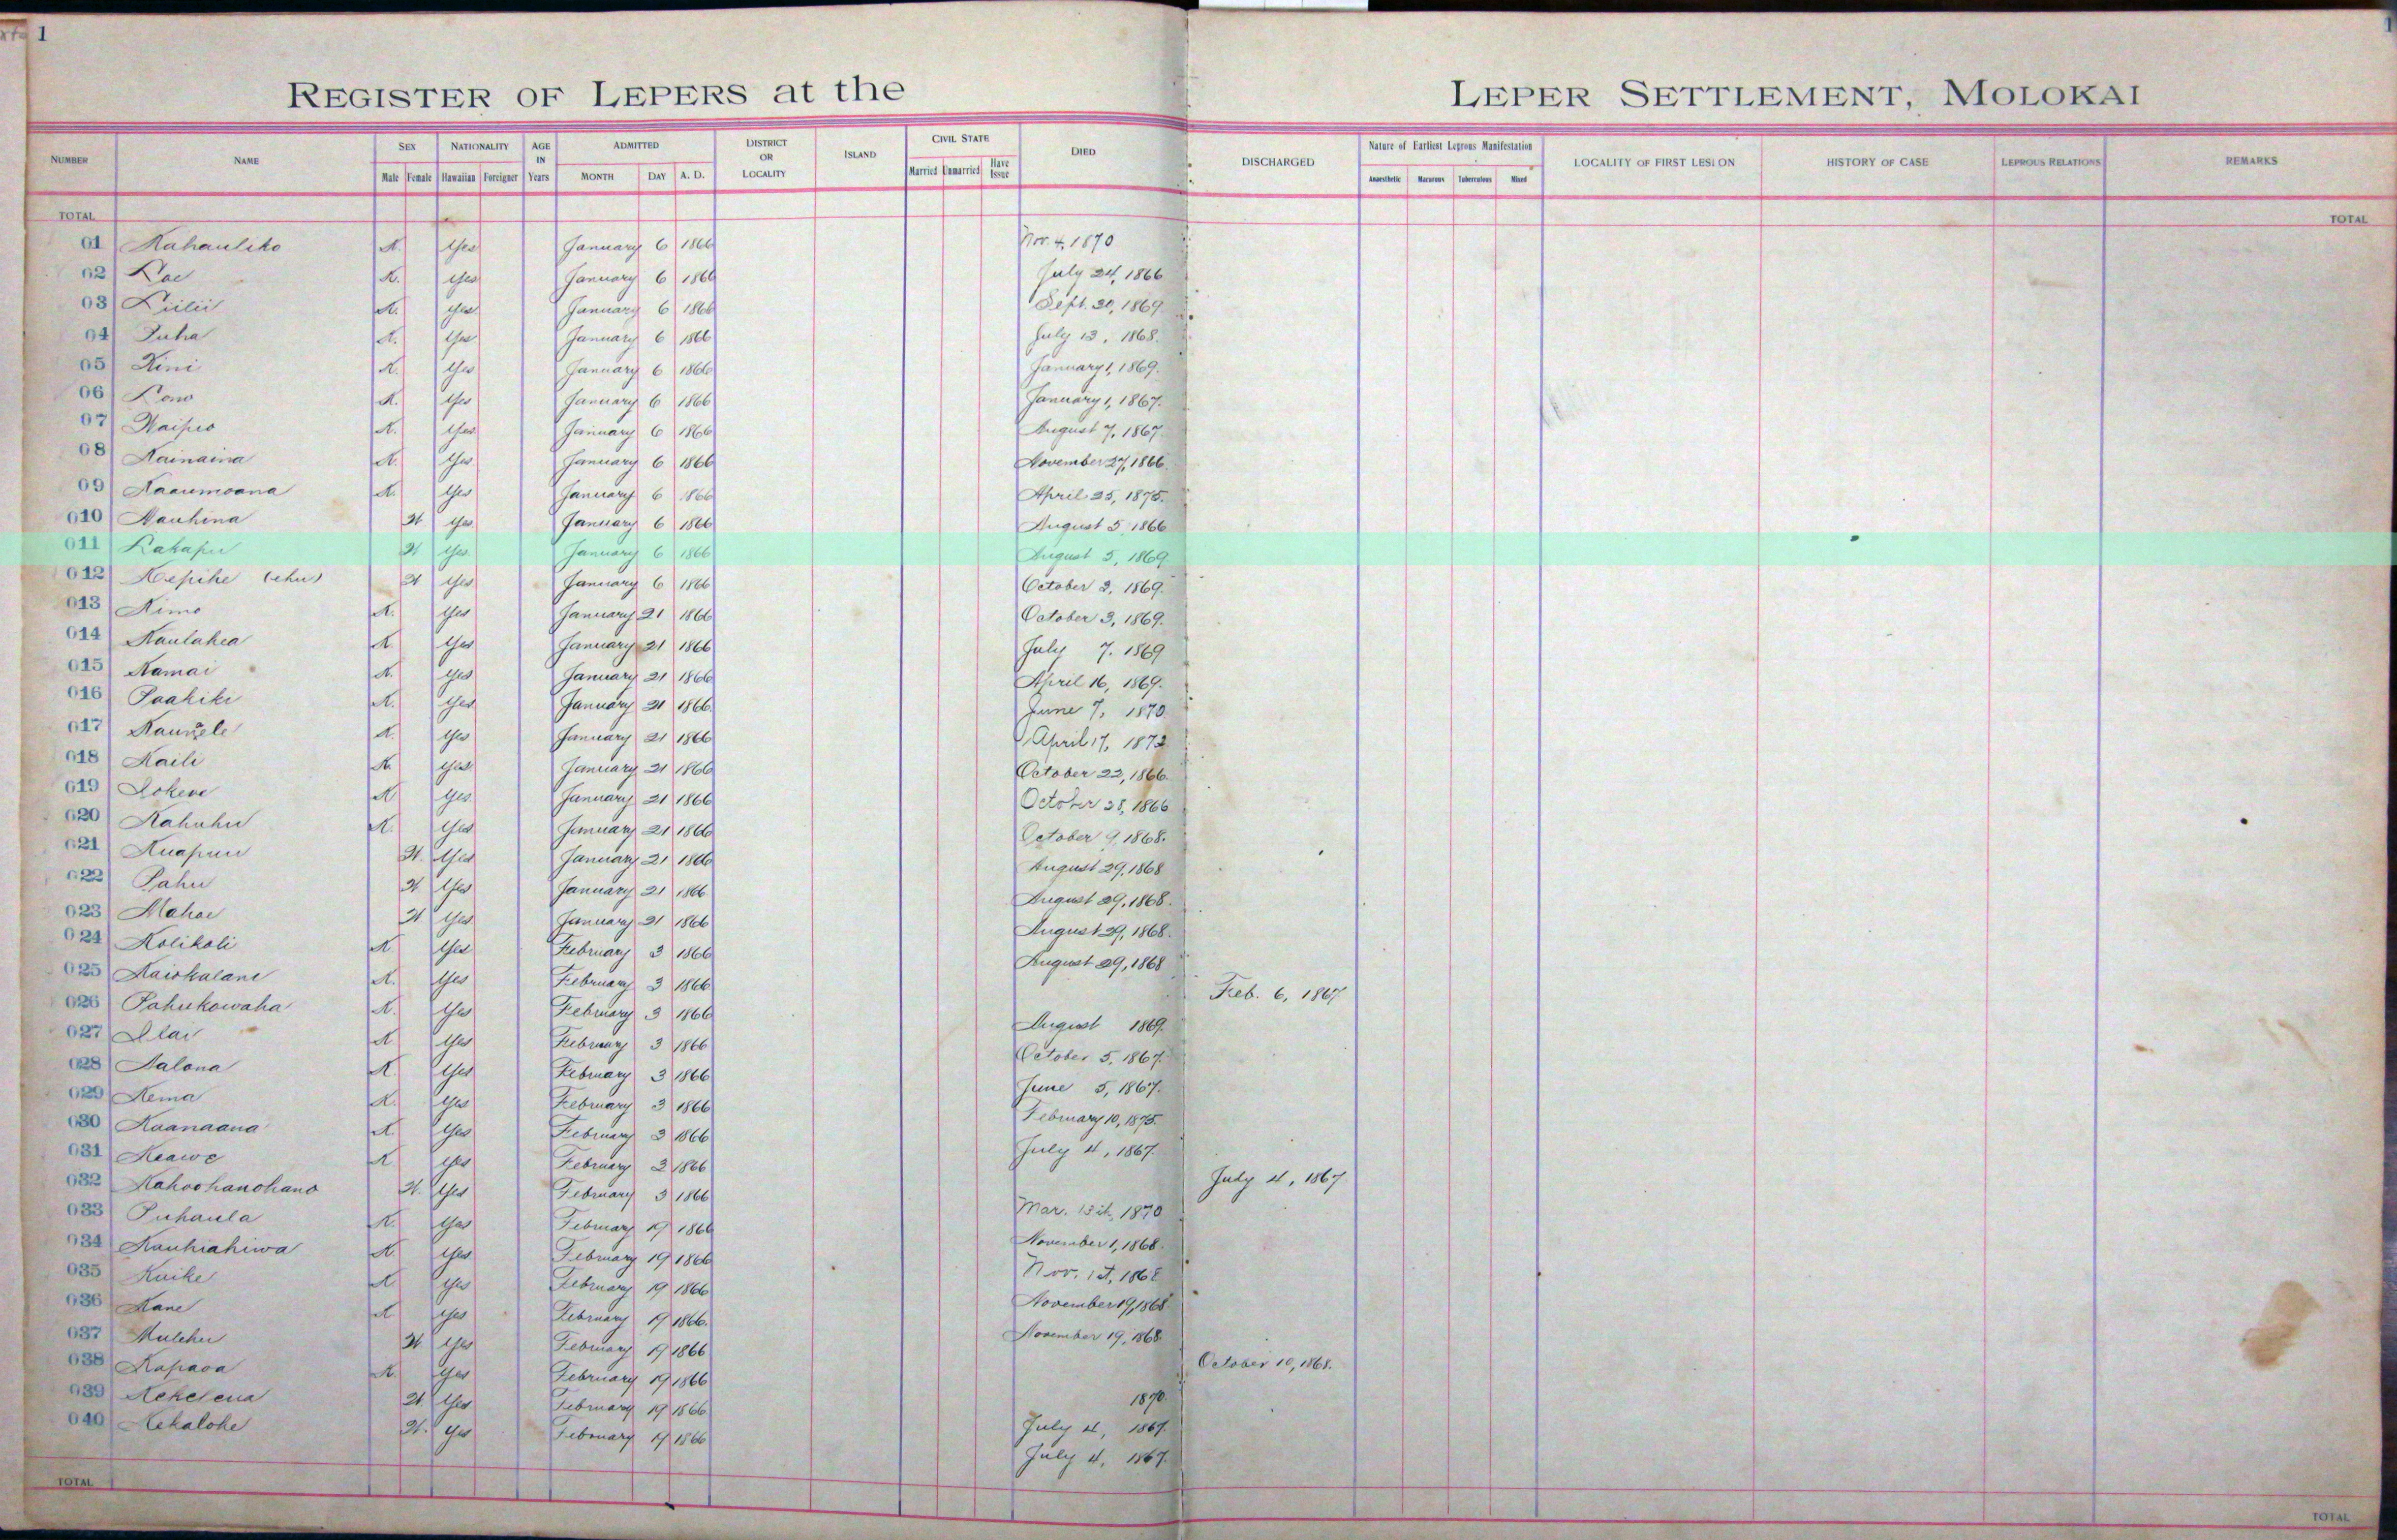 1
REGISTER OF LEPERS at the LEPER SETTLEMENT, MOLOKAI
1
NUMBER NAME SEX NATIONALITY AGE IN Years ADMITTED DISTRICT OR LOCALITY ISLAND CIVIL STATE DIED DISCHARGED Nature of Earliest Leprous Manifestation LOCALITY OF FIRST LESION HISTORY OF CASE LEPROUS RELATIONS REMARKS
Male Female Hawaiian Foreigner MONTH DAY A. D. Married Unmarried Have Issue Anaesthetic Macurous Tuberculous Mixed
TOTAL TOTAL
01 Kahauliko K. Yes January 6 1866 Nov. 4, 1870
02 Lae K. Yes January 6 1866 July 24, 1866
03 Liilii K. Yes January 6 1866 Sept. 30, 1869
04 Puha K. Yes January 6 1866 July 13, 1868.
05 Kini K. Yes January 6 1866 January 1, 1869.
06 Lono K. Yes January 6 1866 January 1, 1867.
07 Waipio K. Yes January 6 1866 August 7, 1867
08 Kainaina K. Yes January 6 1866 November 27, 1866.
09 Kaaumoana K. Yes January 6 1866 April 25, 1875.
010 Nauhina W Yes January 6 1866 August 5, 1866
011 Lakapu W Yes January 6 1866 August 5, 1869
012 Kepihe (ehu) W Yes January 6 1866 October 3, 1869.
013 Kimo K. Yes January 21 1866 October 3, 1869.
014 Kaulahea K. Yes January 21 1866 July 7. 1869
015 Kamai K. Yes January 21 1866 April 16, 1869.
016 Paakiki K. Yes January 21 1866 June 7, 1870
017 K. Yes January 21 1866 April 17, 1872
018 Kaili K. Yes January 21 1866 October 22, 1866.
019 Lokene K Yes January 21 1866 October 28, 1866
020 Kahuhu K. Yes January 21 1866 October 9, 1868.
021 Kuapuu W. Yes January 21 1866 August 29, 1868
022 Pahu W Yes January 21 1866 August 29, 1868.
023 Mahoe W Yes January 21 1866 August 29, 1868.
024 Kolikoli K. Yes February 3 1866 August 29, 1868
025 Kaiokalani K. Yes February 3 1866 Feb. 6, 1867
026 Pahukowaha K. Yes February 3 1866 August 1869.
027 Ilai K Yes February 3 1866 October 5, 1867.
028 Aalona K Yes February 3 1866 June 5, 1867.
029 Kema K. Yes February 3 1866 February 10, 1875.
030 Kaanaana K Yes February 3 1866 July 4, 1867
031 Keawe K Yes February 3 1866 July 4, 1867
032 Kahoohanohano W. Yes February 3 1866 Mar. 15th, 1870
033 Puhaula K. Yes February 19 1866 November 1, 1868.
034 Kauhiahiwa K Yes February 19 1866 Nov. 1st, 1868
035 Kuike K Yes February 19 1866 November 19, 1868
036 Kane K Yes February 19 1866. November 19, 1868.
037 Mulehu W Yes February 19 1866 October 10, 1868.
038 Kapaoa K. Yes February 19 1866 1870.
039 Kekelena W Yes February 19 1866 July 4, 1867.
040 Kekalohe W. Yes February 19 1866 July 4, 1867.
TOTAL TOTAL